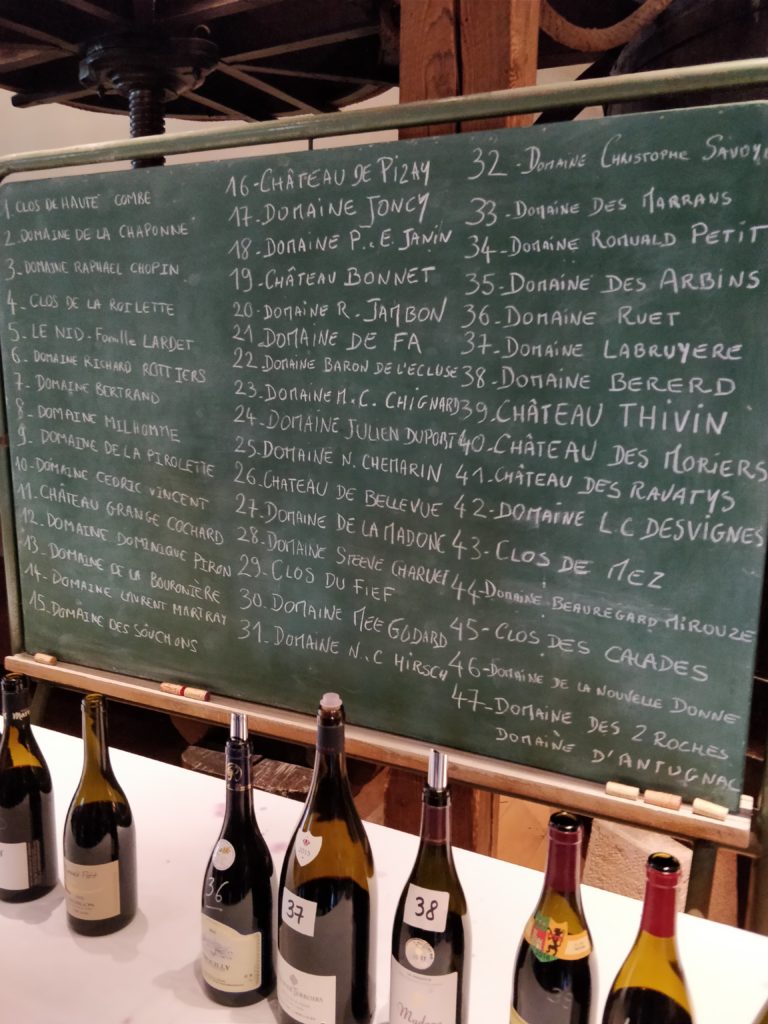 1. CLOS DE HAUTE COMBE
2. DOMAINE DE LA CHAPONNE
3. DOMAINE RAPHAEL CHOPIN
4. CLOS DE LA ROILETTE
5. LE NID. Famille LARDET
6. DOMAINE RICHARD ROTTIERS
7. DOMAINE BERTRAND
8. DOMAINE MILHOMME
9. DOMAINE DE LA PIROLETTE
10. DOMAINE CEDRIC VINCENT
11. CHÂTEAU GRANGE COCHARD
12. DOMAINE DOMINIQUE PIRON
13. DOMAINE DE LA BOURONIÈRE
14. DOMAINE LAURENT MARTRAY
15. DOMAINE DES SOUCHONS
16-CHÂTEAU DE PIZAY
17-DOMAINE JONCY
18-DOMAINE P..E. JANIN
19-CHÂTEAU BONNET
20-DOMAINE R. JAMBON
21-DOMAINE DE FA
22-DOMAINE BARON DE L'ECLUSE
23-DOMAINE M.C. CHIGNARD
24-DOMAINE JULIEN DUPORT
25-DOMAINE N. CHEMARIN
26-CHATEAU DE BELLEVUE
27-DOMAINE DE LA MADONE
28-DOMAINE STEEVE CHARVET
29-CLOS DU FIEF
30-DOMAINE MEE GODARD
31-DOMAINE N.C HIRSCH
32-DOMAINE CHRISTOPHE SAVOYE
33-DOMAINE DES MARRANS
34-DOMAINE ROMUALD PETIT
35-DOMAINE DES ARBINS
36-DOMAINE RUET
37-DOMAINE LABRUYERE
38-DOMAINE BERERD
39-CHÂTEAU THIVIN
40-CHÂTEAU DES MORIERS
41-CHÂTEAU DES RAVATYS
42-DOMAINE L C DESVIGNES
43-CLOS DE MEZ
44-DOMAINE BEAUREGARD MIROUZE
45-CLOS DES CALADES
46-DOMAINE DE LA NOUVELLE DONNE
47-DOMAINE DES 2 ROCHES
DOMAINE D'ANTUGNAC
36
37
38
2015